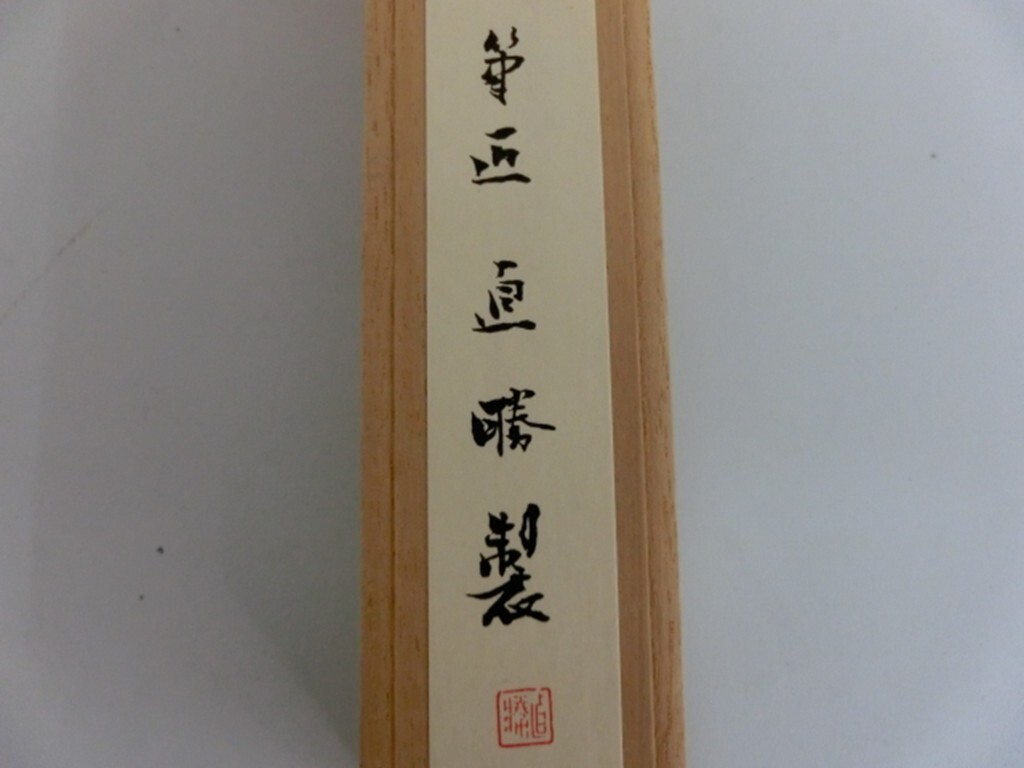 筆匠 直勝製
直勝